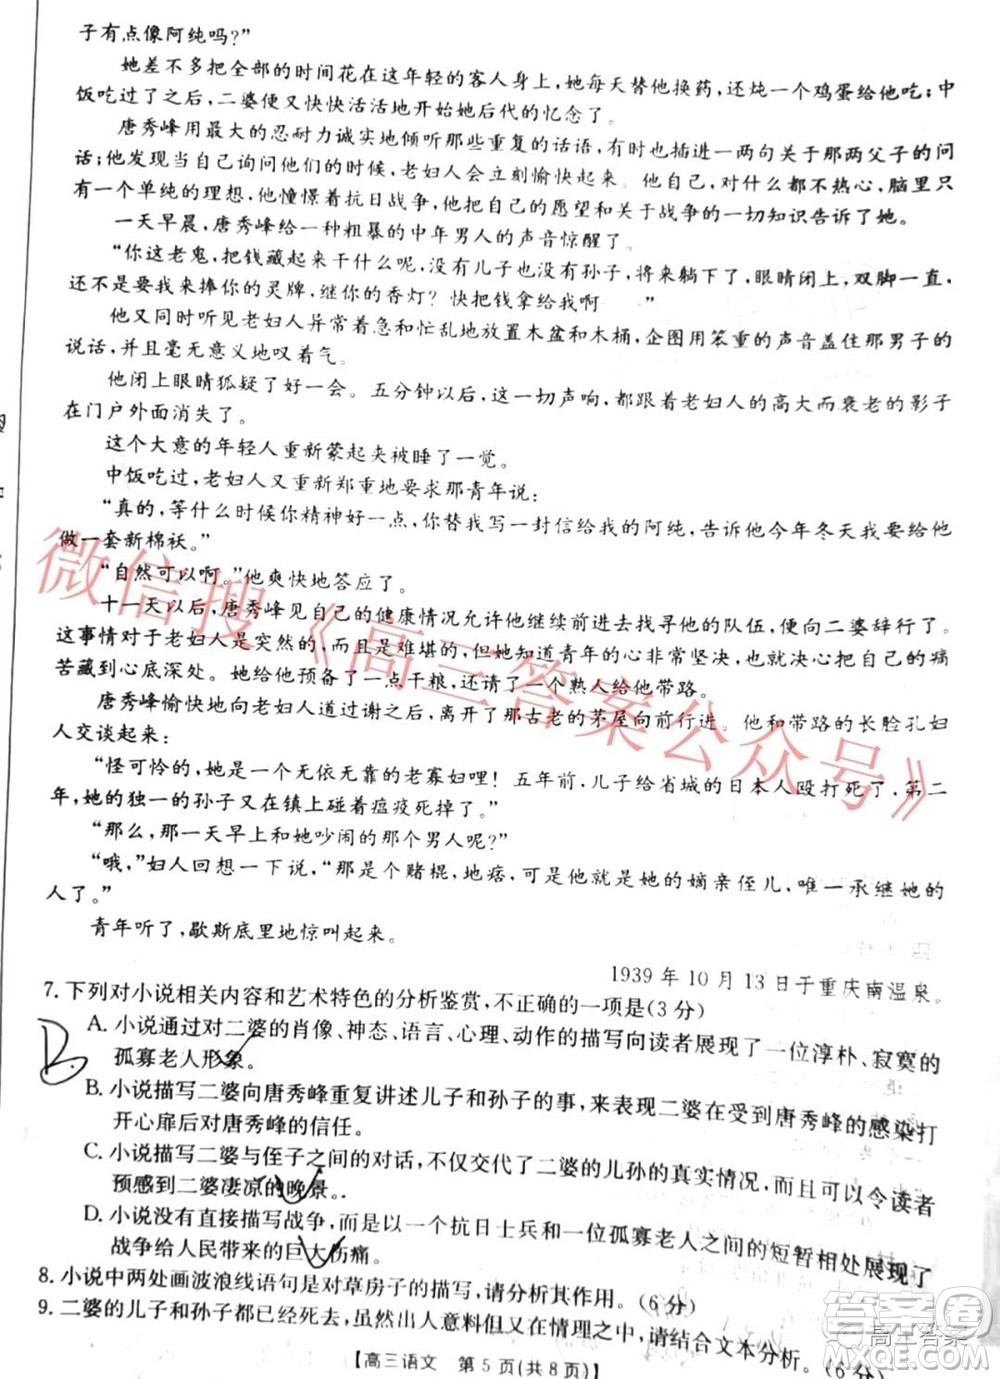 子有点像阿纯吗?”
她差不多把全部的时间花在这年轻的客人身上,她每天替他换药,还炖一个鸡蛋给他吃;中
饭吃过了之后,二婆便又快快活活地开始她后代的忆念了。
唐秀峰用最大的忍耐力诚实地倾听那些重复的话语,有时也插进一两句关于那两父子的问
话;他发现当自己询问他们的时候,老妇人会立刻愉快起来。他自己,对什么都不热心,脑里只
有一个单纯的理想,他憧憬着抗日战争,他把自己的愿望和关于战争的一切知识告诉了她。
一天早晨,唐秀峰给一种粗暴的中年男人的声音惊醒了。
“你这老鬼,把钱藏起来干什么呢,没有儿子也没有孙子,将来躺下了,眼睛闭上,双脚一直,
还不是要我来捧你的灵牌,继你的香灯?快把钱拿给我啊 ”
他又同时听见老妇人异常着急和忙乱地放置木盆和木桶,企图用笨重的声音盖住那男子的
说话,并且毫无意义地叹着气。
他闭上眼睛狐疑了好一会。五分钟以后,这一切声响,都和老妇人的高大而衰老的影子
在门户外面消失了。
这个大意的年轻人重新蒙起夹被睡了一觉。
中饭吃过,老妇人又重新郑重地要求那青年说:
“真的,等什么时候你精神好一点,你替我写一封信给我的阿纯,告诉他今年冬天我会给他
做一套新棉袄。”
“自然可以啊。”他爽快地答应了。
十一天以后,唐秀峰见自己的健康情况允许他继续前进去找寻他的队伍,便向二婆辞行了。
这事情对于老妇人是难堪的,但她知道青年的心非常坚决,无法挽留,只得把自己的痛
苦藏到心底深处。她给他预备了一点干粮,又请了一个熟人给他带路。
唐秀峰愉快地向老妇人道过谢之后,离开了那古老的茅屋向前行进。他和带路的长脸孔妇
人交谈起来:
“怪可怜的一个无依无靠的老寡妇哩!五年前,儿子给省城的日本人殴打死了,第二
年,她的独一的孙子在镇上碰着瘟疫死掉了。”
“那么,那一天早上和她吵闹的那个男人呢?”
“哦,”妇人回想一下说,“那是个赌棍,地痞,可是他就是她的嫡亲侄儿,唯一承继她的
人了。”
青年听了,歇斯底里地惊叫起来。
1939年10月13日于重庆南温泉。
7.下列对小说相关内容和艺术特色的分析鉴赏,不正确的一项是(3分)
B.
A.小说通过对二婆的肖像、神态、语言、心理、动作的描写向读者展现了一位淳朴、寂寞的
孤寡老人形象。
B.小说描写二婆向唐秀峰重复讲述儿子和孙子的事,表现二婆在受到唐秀峰的感染打
开心扉后对唐秀峰的信任。
C.小说描写二婆与侄子之间的对话,不仅交代了二婆的儿孙的真实情况,而且可以令读者
预感到二婆凄凉的晚景。
D.小说没有直接描写战争,而是以一个抗日士兵和一位孤寡老人之间的短暂相处展现了
战争给人民带来的巨大伤痛。
8.小说中两处画波浪线语句是对草房子的描写,请分析其作用。(6分)
9.二婆的儿子和孙子都已经死去,虽然出人意料但又在情理之中,请结合文本分析。(6分)
【高三语文 第5页(共8页)】
微信搜《高三答案公众号》
答案圈
高三答案
MXQE.COM